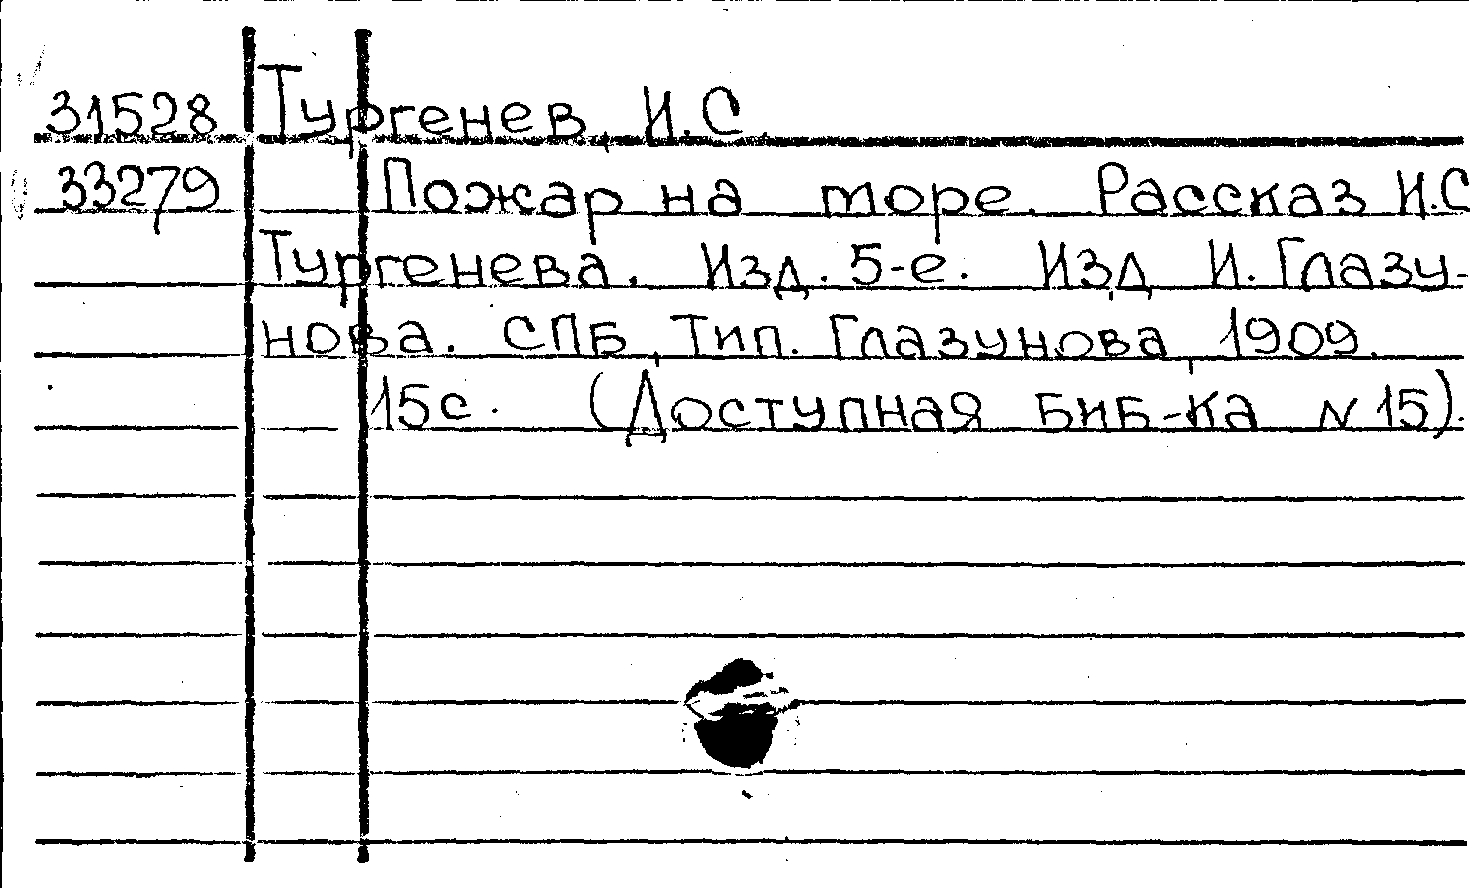 31528 Тургенев, И.С.
33279 Пожар на море. Рассказ И.С
Тургенева. Изд. 5-е. Изд. И. Глазу-
нова. СПБ, Тип. Глазунова, 1909.
15с. (Доступная биб-ка N 15).